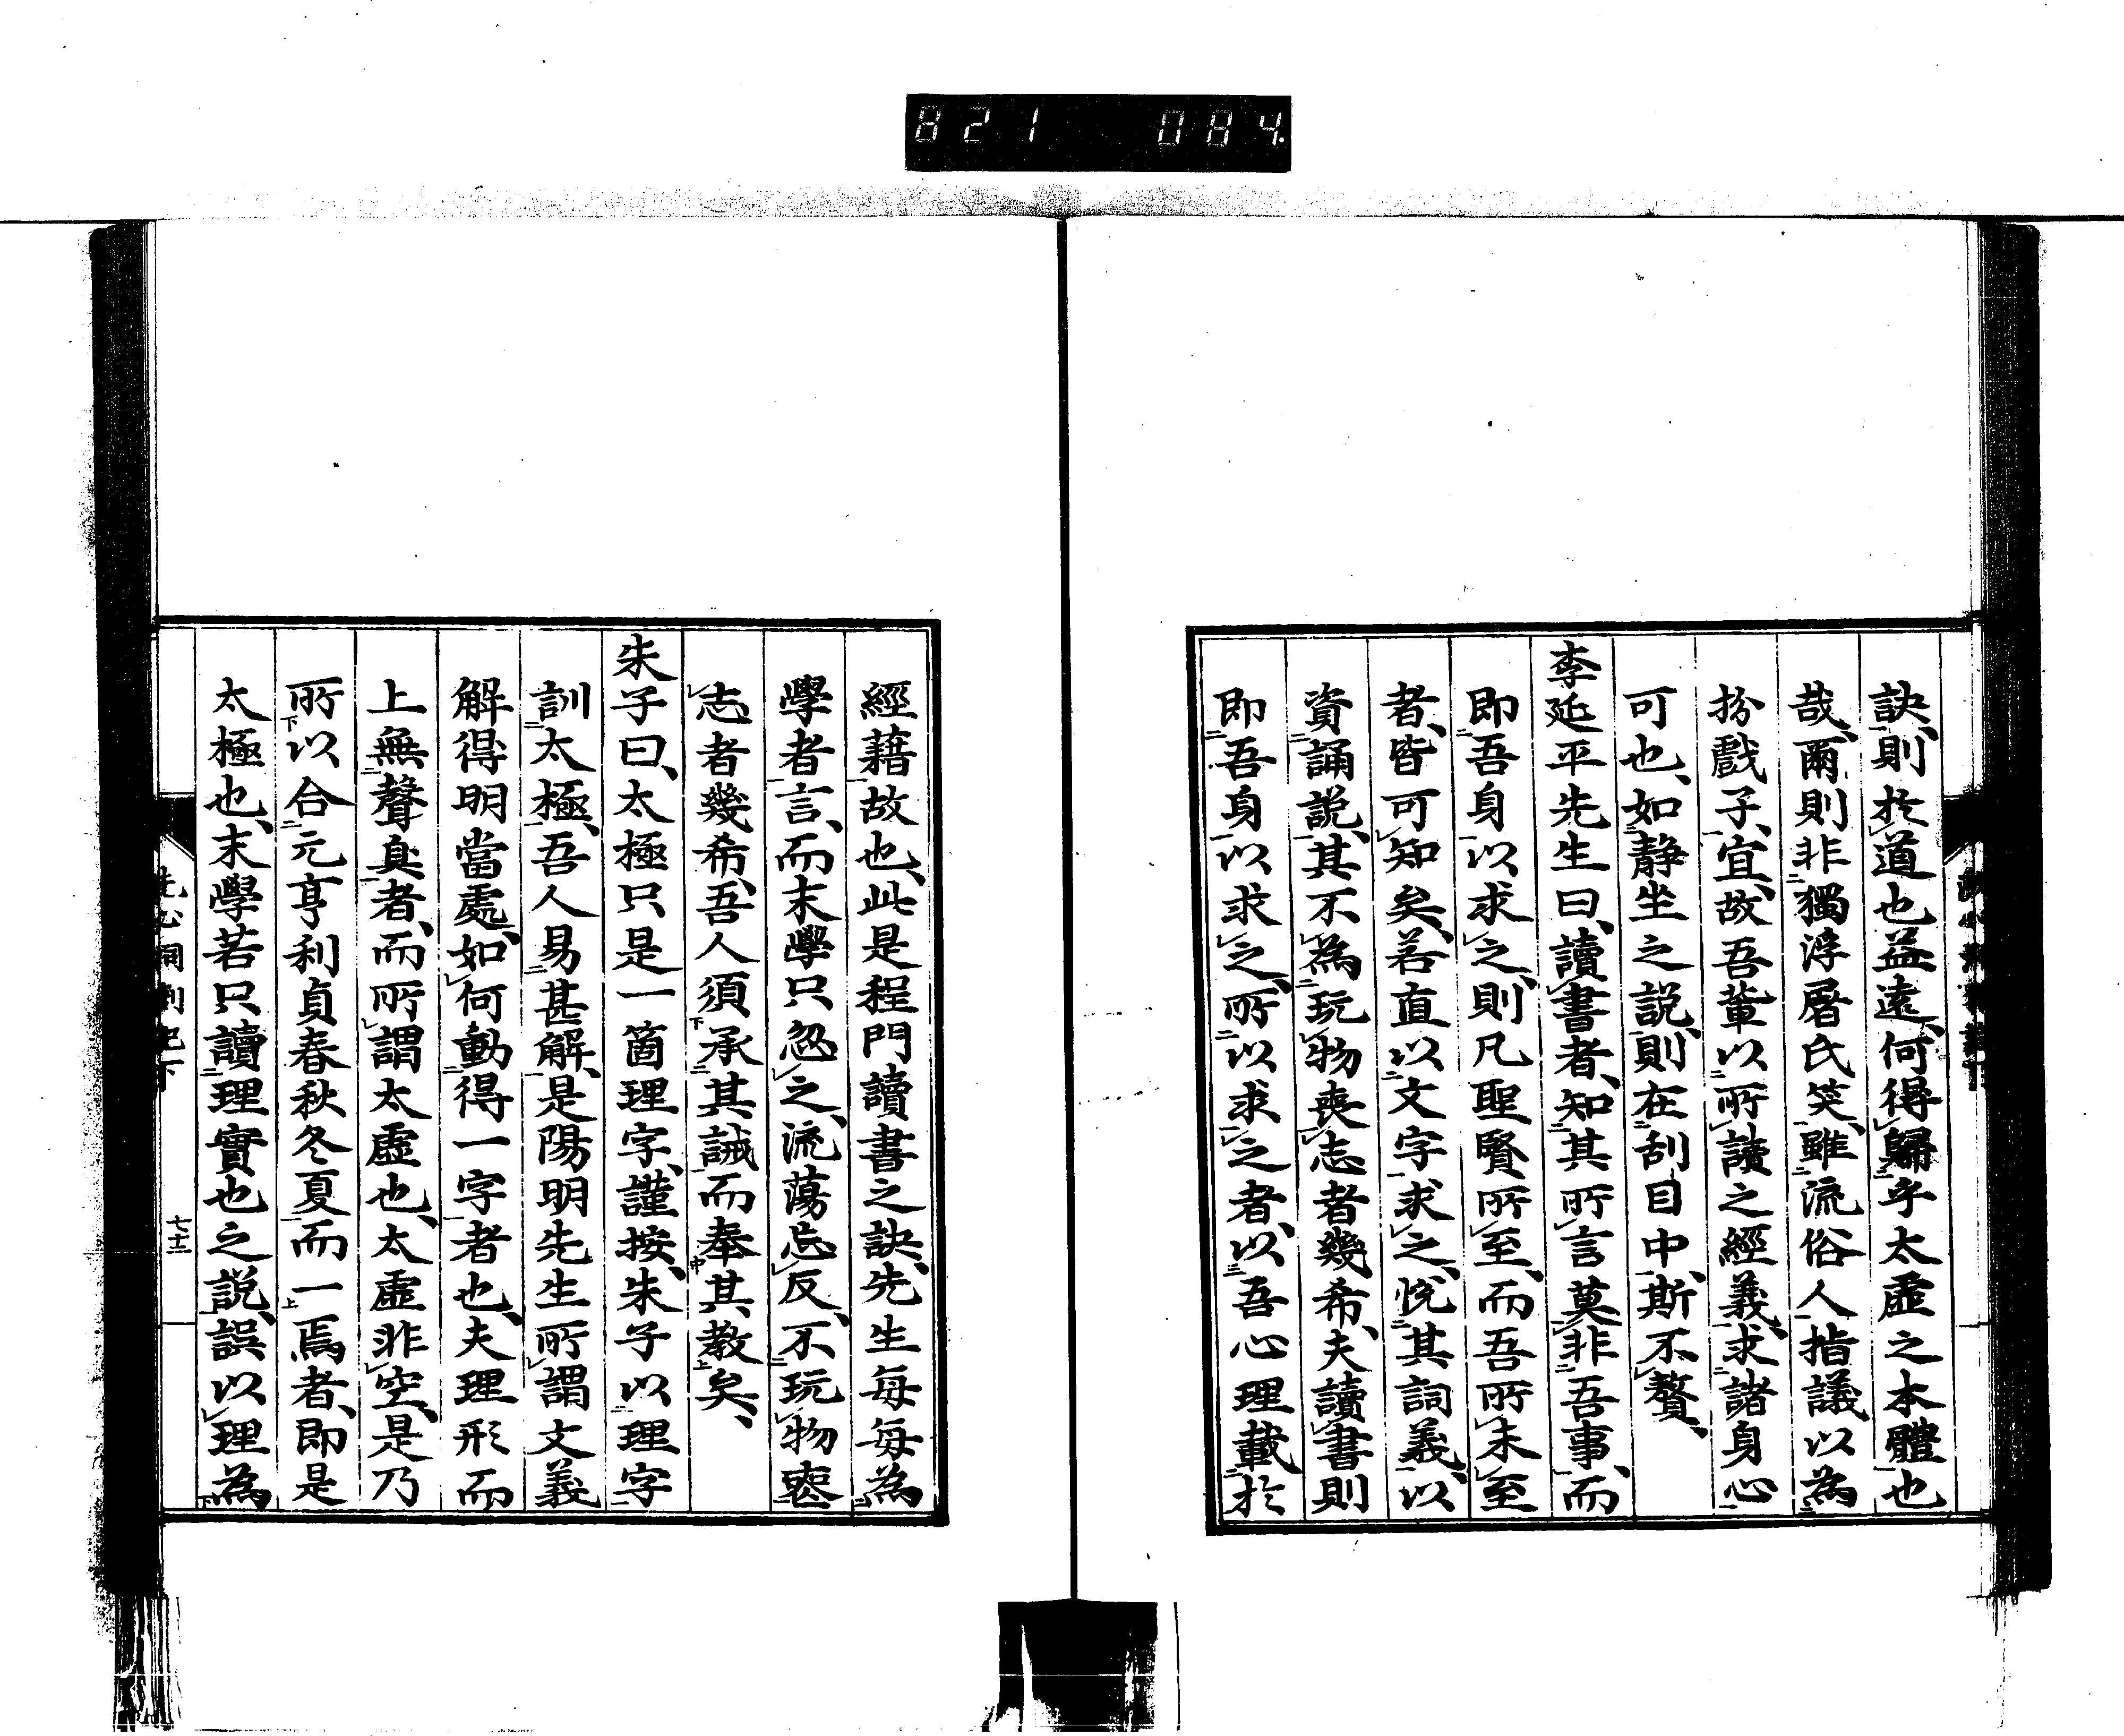 821 084
訣、則於道也益遠、何得歸乎太虛之本體也
哉、爾則非獨浮屠氏笑、雖流俗人指議以為
扮戲子、宜、故吾輩以所讀之經義、求諸身心
可也、如靜坐之説、則在刮目中、斯不贅、
李延平先生曰、讀書者、知其所言莫非吾事、而
即吾身以求之、則凡聖賢所至、而吾所未至
者、皆可知矣、若直以文字求之、悅其詞義、以
資誦説、其不為玩物喪志者幾希、夫讀書則
即吾身以求之、所以求之者、以吾心理載於
經藉故也、此是程門讀書之訣、先生每每為
學者言、而末學只忽之、流蕩忘反、不玩物喪
志者幾希、吾人須承其誡而奉其教矣、
朱子曰、太極只是一箇理字、謹按、朱子以理字
訓太極、吾人易甚解、是陽明先生所謂文義
解得明當處、如何動得一字者也、夫理形而
上無聲臭者、而所謂太虛也、太虛非空、是乃
所以合元亨利貞春秋冬夏而一焉者、即是
太極也、末學若只讀理實也之説、誤以理為
洗心洞劄記下
七十二